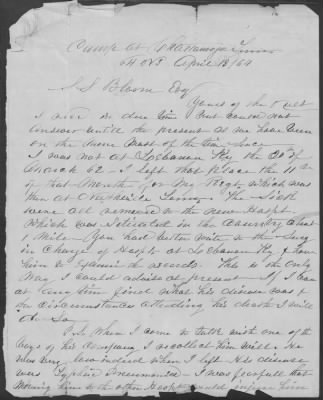 Camp at Chattanooga Tenn
April 13/64
S. S. Bloom Esq
Yours of the ult
I rec'd in due time but could not
answer until the present as we have been
on the move most of the time since
I was not at Lebanon Ky the 20th of
March 62 - I left that Place the 11th
of that Month for my Regt which was
then at Nashville Tenn. The Sick
were all removed to the new Hospt
Which was situated in the Country about
1 Mile - You had better write to the Surg
in Charge of Hospt at Lebanon Ky & have
him to Examin the records. This is the only
Way I could advise at present - If I can
at any time find what his disease was &
the circumstances attending his death I will
do so
P.S. When I come to talk with one of the
boys of his company I recollect him well. He
was very low indeed when I left His disease
was Typhoid Pneumonia - I was fearfull that
moving him to the other Hospt would injure him